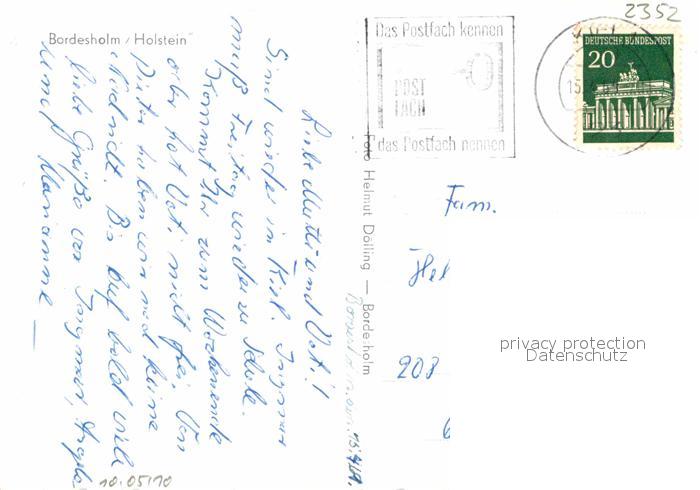 2352
Bordesholm / Holstein
Das Postfach kennen
POST
FACH
das Postfach nennen
DEUTSCHE BUNDESPOST
20
Liebe Mutti und Vati!
Sind wieder in Kiel. Ingmar
muß Freitag wieder zu Schule.
Kommt Ihr zum Wochenende
oder hat Vati nicht frei. Von
Dieter haben wir noch keine
Nachricht. Bis auf bald viele
liebe Grüße von Ingmar,
und Marianne
Foto Helmut Dölling — Bordesholm
Fam.
Hel
208
6
privacy protection
Datenschutz
10.05/10